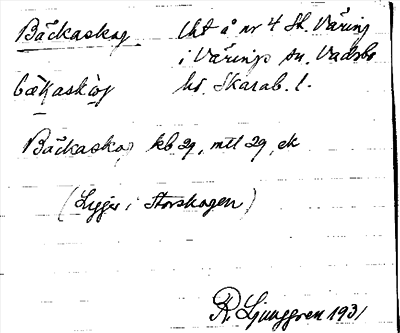 Bäckaskog Utt å nr 4 St. Väring
i Värings sn. Vadsbo
bækaskoǥ hd. Skarab. l.
Bäckaskog kb 29, mtl 29, ek
(Ligger i Storskogen)
R. Ljunggren 1931